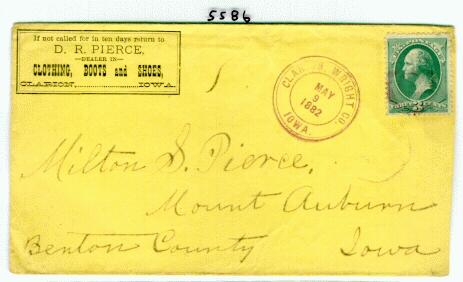 5586
If not called for in ten days return to
D. R. PIERCE,
—DEALER IN—
CLOTHING, BOOTS and SHOES,
CLARION, IOWA.
CLARION, WRIGHT CO.
MAY
9
1882
IOWA.
Milton S. Pierce,
Mount Auburn
Benton County Iowa